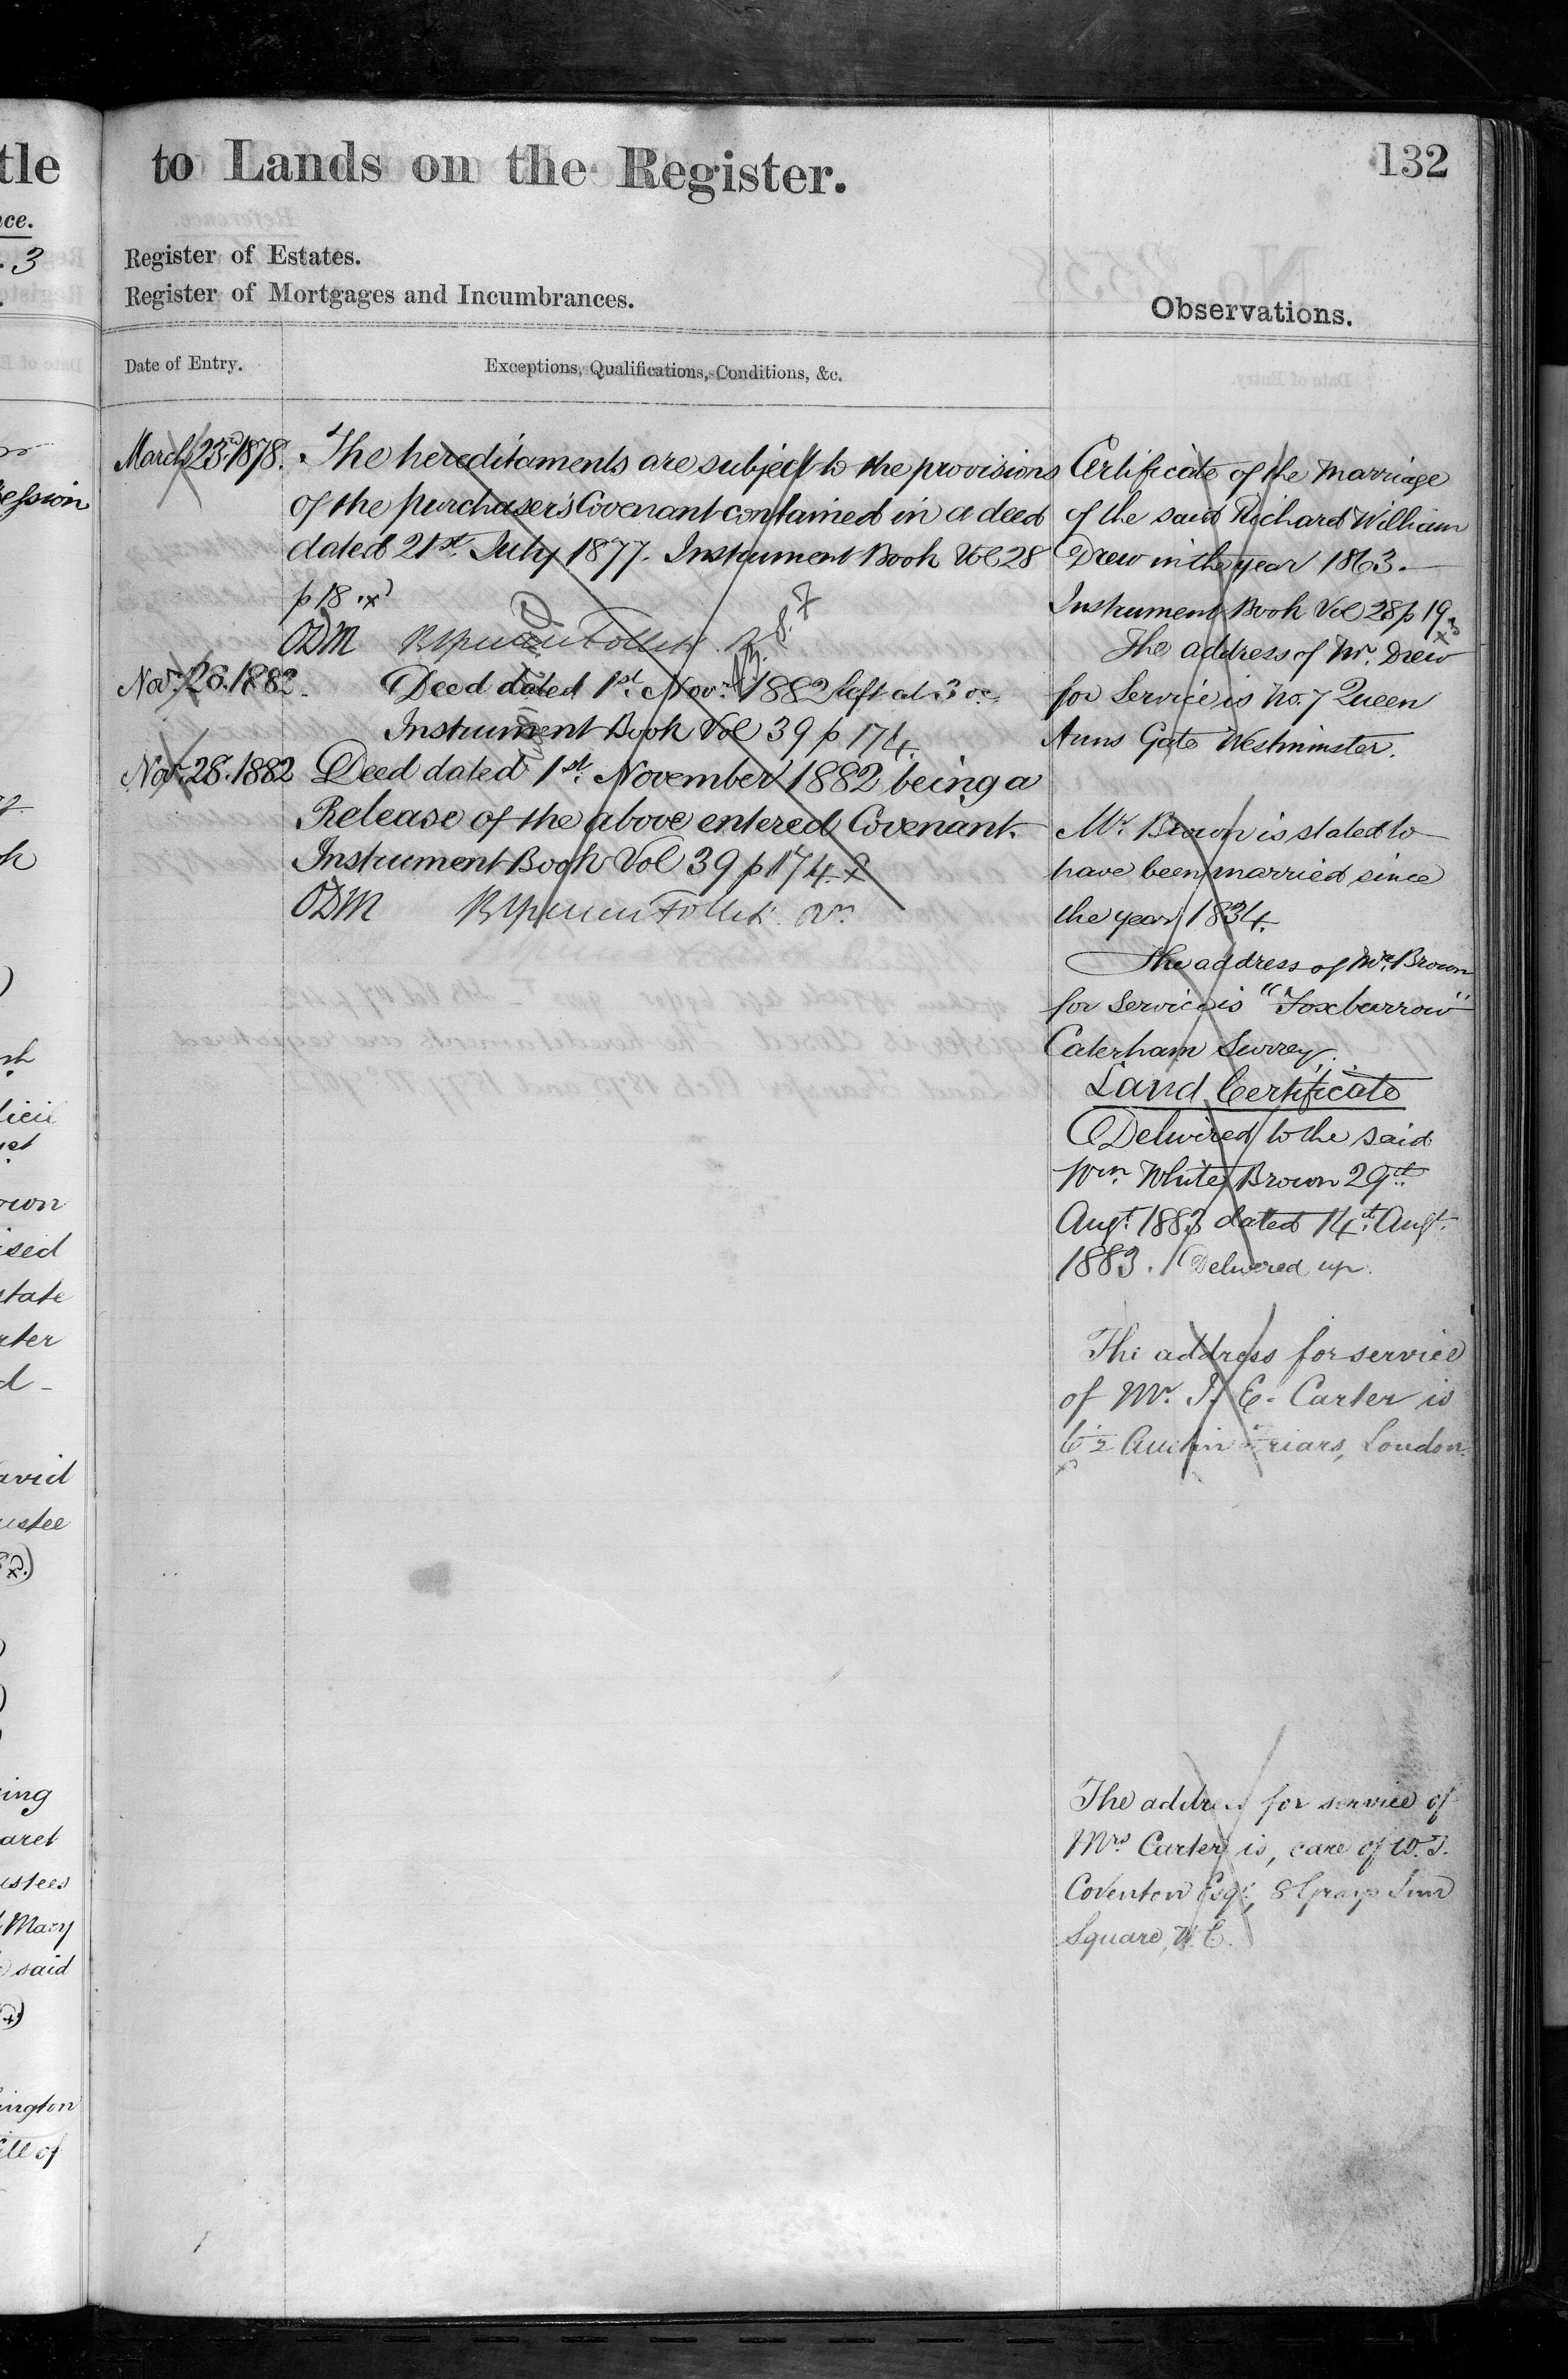 to Lands on the Register.
132
Register of Estates.
Register of Mortgages and Incumbrances.
Observations.
Date of Entry.
Exceptions, Qualifications, Conditions, &c.
March 23rd 1878.
The hereditaments are subject to the provisions
of the purchaser's Covenant contained in a deed
dated 21st July 1877. Instrument Book Vol 28
p 18 x
ODM
Novr 28. 1882.
Deed dated 1st Novr 1882 left at 3 oc
Instrument Book Vol 39 p 174
Novr 28. 1882
Deed dated 1st November 1882 being a
Release of the above entered Covenant.
Instrument Book Vol 39 p 174 x
ODM
Certificate of the Marriage
of the said Richard William
Drew in the year 1863.
Instrument Book Vol 28 p 19
The address of Mr. Drew
for Service is No. 7 Queen
Anns Gate Westminster.
Mr. Brown is stated to
have been married since
the year 1834.
The address of Mr. Brown
for Service is "Foxburrow"
Caterham Surrey.
Land Certificate
Delivered to the said
Wm. White Brown 29th
Augt. 1883 dated 14th Augt.
1883. Delivered up.
The address for service
of Mr. J. E. Carter is
Austin Friars, London.
The address for service of
Mrs Carter is, care of W. J.
Coventon Esqr., 8 Grays Inn
Square, W.C.
tle
nce.
. 3
session
own
ised
state
rter
avid
ustee
ing
aret
ustees
Mary
said
ington
ill of